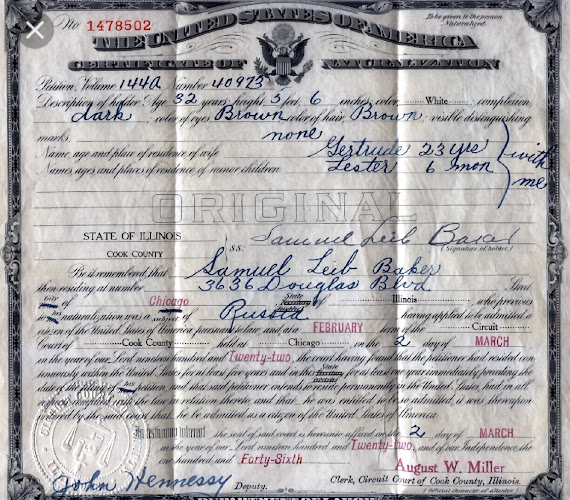 No. 1478502
To be given to the person Naturalized.
THE UNITED STATES OF AMERICA
CERTIFICATE OF NATURALIZATION
Petition, Volume 144A Number 40973
Description of holder: Age, 32 years; height, 5 feet, 6 inches; color, White; complexion,
dark; color of eyes, Brown; color of hair, Brown; visible distinguishing
marks, none
Name, age and place of residence of wife Gertrude 23 yrs
Names, ages and places of residence of minor children Lester 6 mon
with me
ORIGINAL
STATE OF ILLINOIS
COOK COUNTY
S.S: Samuel Leib Baker
(Signature of holder)
Be it remembered that Samuel Leib Baker
then residing at number 3636 Douglas Blvd Street
City of Chicago State of Illinois, who previous
to his naturalization was a of Russia having applied to be admitted a
citizen of the United States of America pursuant to law, and at a FEBRUARY term of the Circuit
Court of Cook County held at Chicago on the 2 day of MARCH
in the year of our Lord nineteen hundred and Twenty-two, the court having found that the petitioner had resided con-
tinuously within the United States for at least five years and in this State for at least one year immediately preceding the
date of the petition, and that said petitioner intends to reside permanently in the United States, had in all
respects complied with the law in relation thereto, and that he was entitled to be so admitted, it was thereupon
ordered by the said court that he be admitted as a citizen of the United States of America.
In testimony whereof the seal of said court is hereunto affixed on the 2 day of MARCH
in the year of our Lord nineteen hundred and Twenty-two, and of our Independence the
one hundred and Forty-Sixth
August W. Miller
John Hennessy Deputy. Clerk, Circuit Court of Cook County, Illinois.
(Official character of attestor)
DEPARTMENT OF LABOR